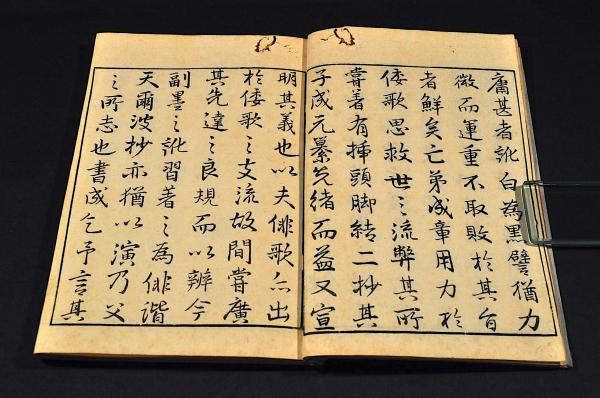 腐甚者訛白為黒譬猶力
微而運重不取敗於其自
者鮮矣亡弟成章用力於
倭歌思救世之流弊其所
嘗著有挿頭脚結二抄其
子成元纂先緒而益又宣
明其義也以夫俳歌亦出
於倭歌之支流故間嘗廣
其先達之良規而以辨今
副墨之訛習著之為俳諧
天爾波抄亦猶以演乃父
之所志也書成乞予言其